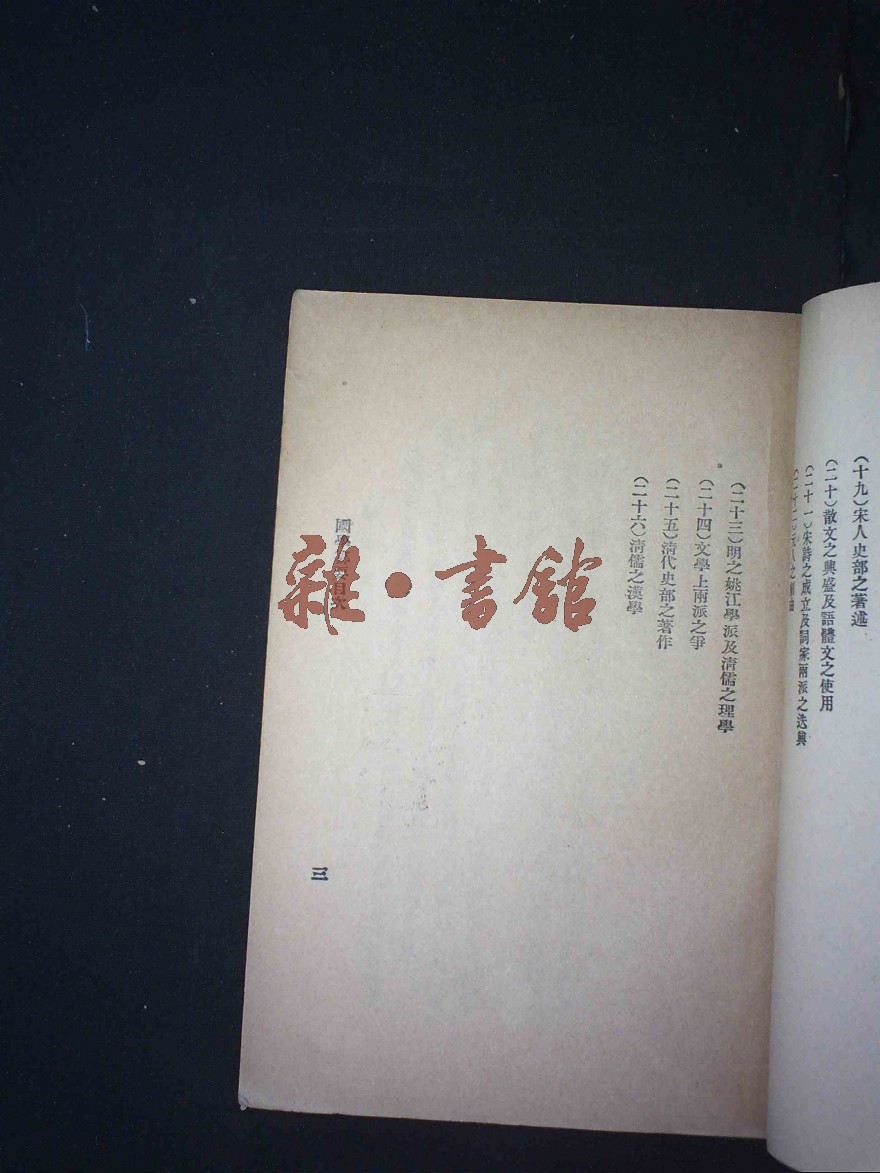 (十九)宋人史部之著述
(二十)散文之興盛及語體文之使用
(二十一)宋詩之成立及詞家兩派之迭興
(二十二)元人之
(二十三)明之姚江學派及清儒之理學
(二十四)文學上兩派之爭
(二十五)清代史部之著作
(二十六)清儒之漢學
國學 要目次
三
雜·書館